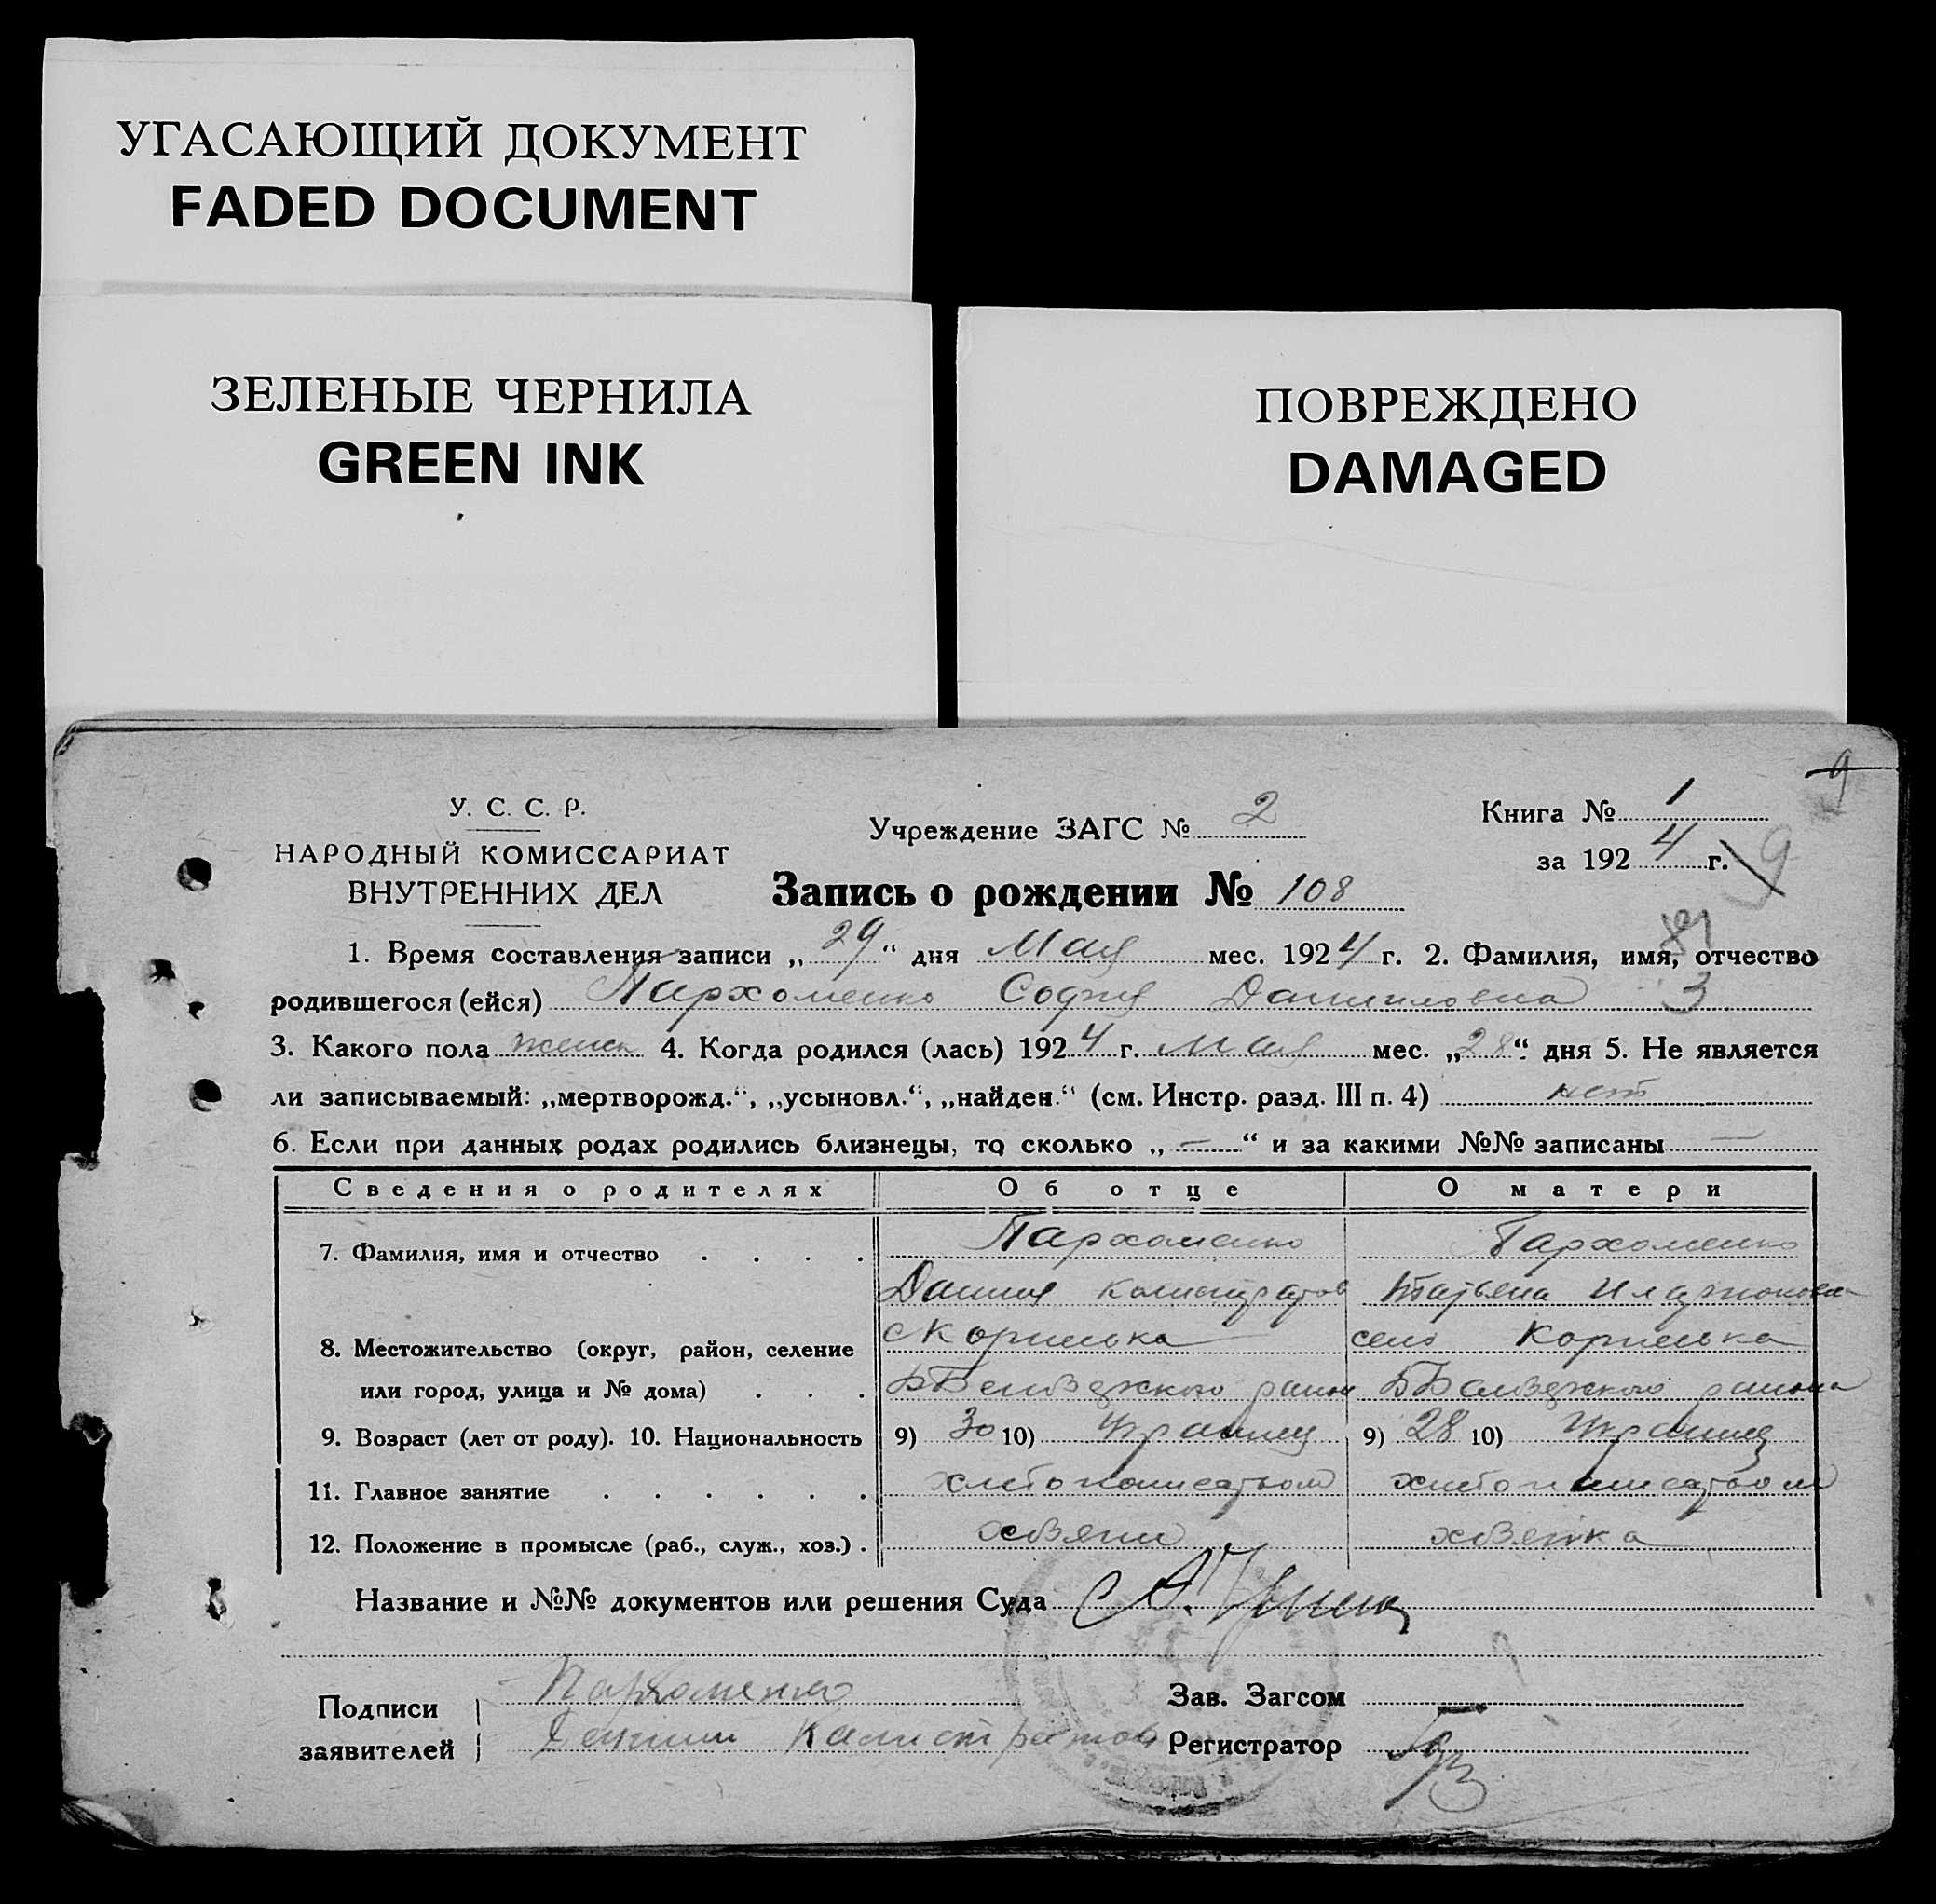 УГАСАЮЩИЙ ДОКУМЕНТ
FADED DOCUMENT
ЗЕЛЕНЫЕ ЧЕРНИЛА
GREEN INK
ПОВРЕЖДЕНО
DAMAGED
9
У. С. С. Р.
НАРОДНЫЙ КОМИССАРИАТ
ВНУТРЕННИХ ДЕЛ
Учреждение ЗАГС № 2
Книга № 1
за 1924 г. 9
Запись о рождении № 108
1. Время составления записи „29“ дня Мая мес. 1924 г. 2. Фамилия, имя, отчество
родившегося (ейся) Пархоменко София Даниловна 3
3. Какого пола женск 4. Когда родился (лась) 1924 г. мая мес. „28“ дня 5. Не является
ли записываемый: „мертворожд.“, „усыновл.“, „найден.“ (см. Инстр. разд. III п. 4) нет
6. Если при данных родах родились близнецы, то сколько „—“ и за какими №№ записаны —
Сведения о родителях Об отце О матери
7. Фамилия, имя и отчество . . . . Пархоменко Пархоменко
Данил Калистратов Татьяна
8. Местожительство (округ, район, селение село
или город, улица и № дома) . . . района района
9. Возраст (лет от роду). 10. Национальность 9) 30 10) Украинец 9) 28 10) Украинец
11. Главное занятие . . . . . .
12. Положение в промысле (раб., служ., хоз.) . хозяин хозяйка
Название и №№ документов или решения Суда
Подписи заявителей Пархоменко
Калистратов
Зав. Загсом
Регистратор